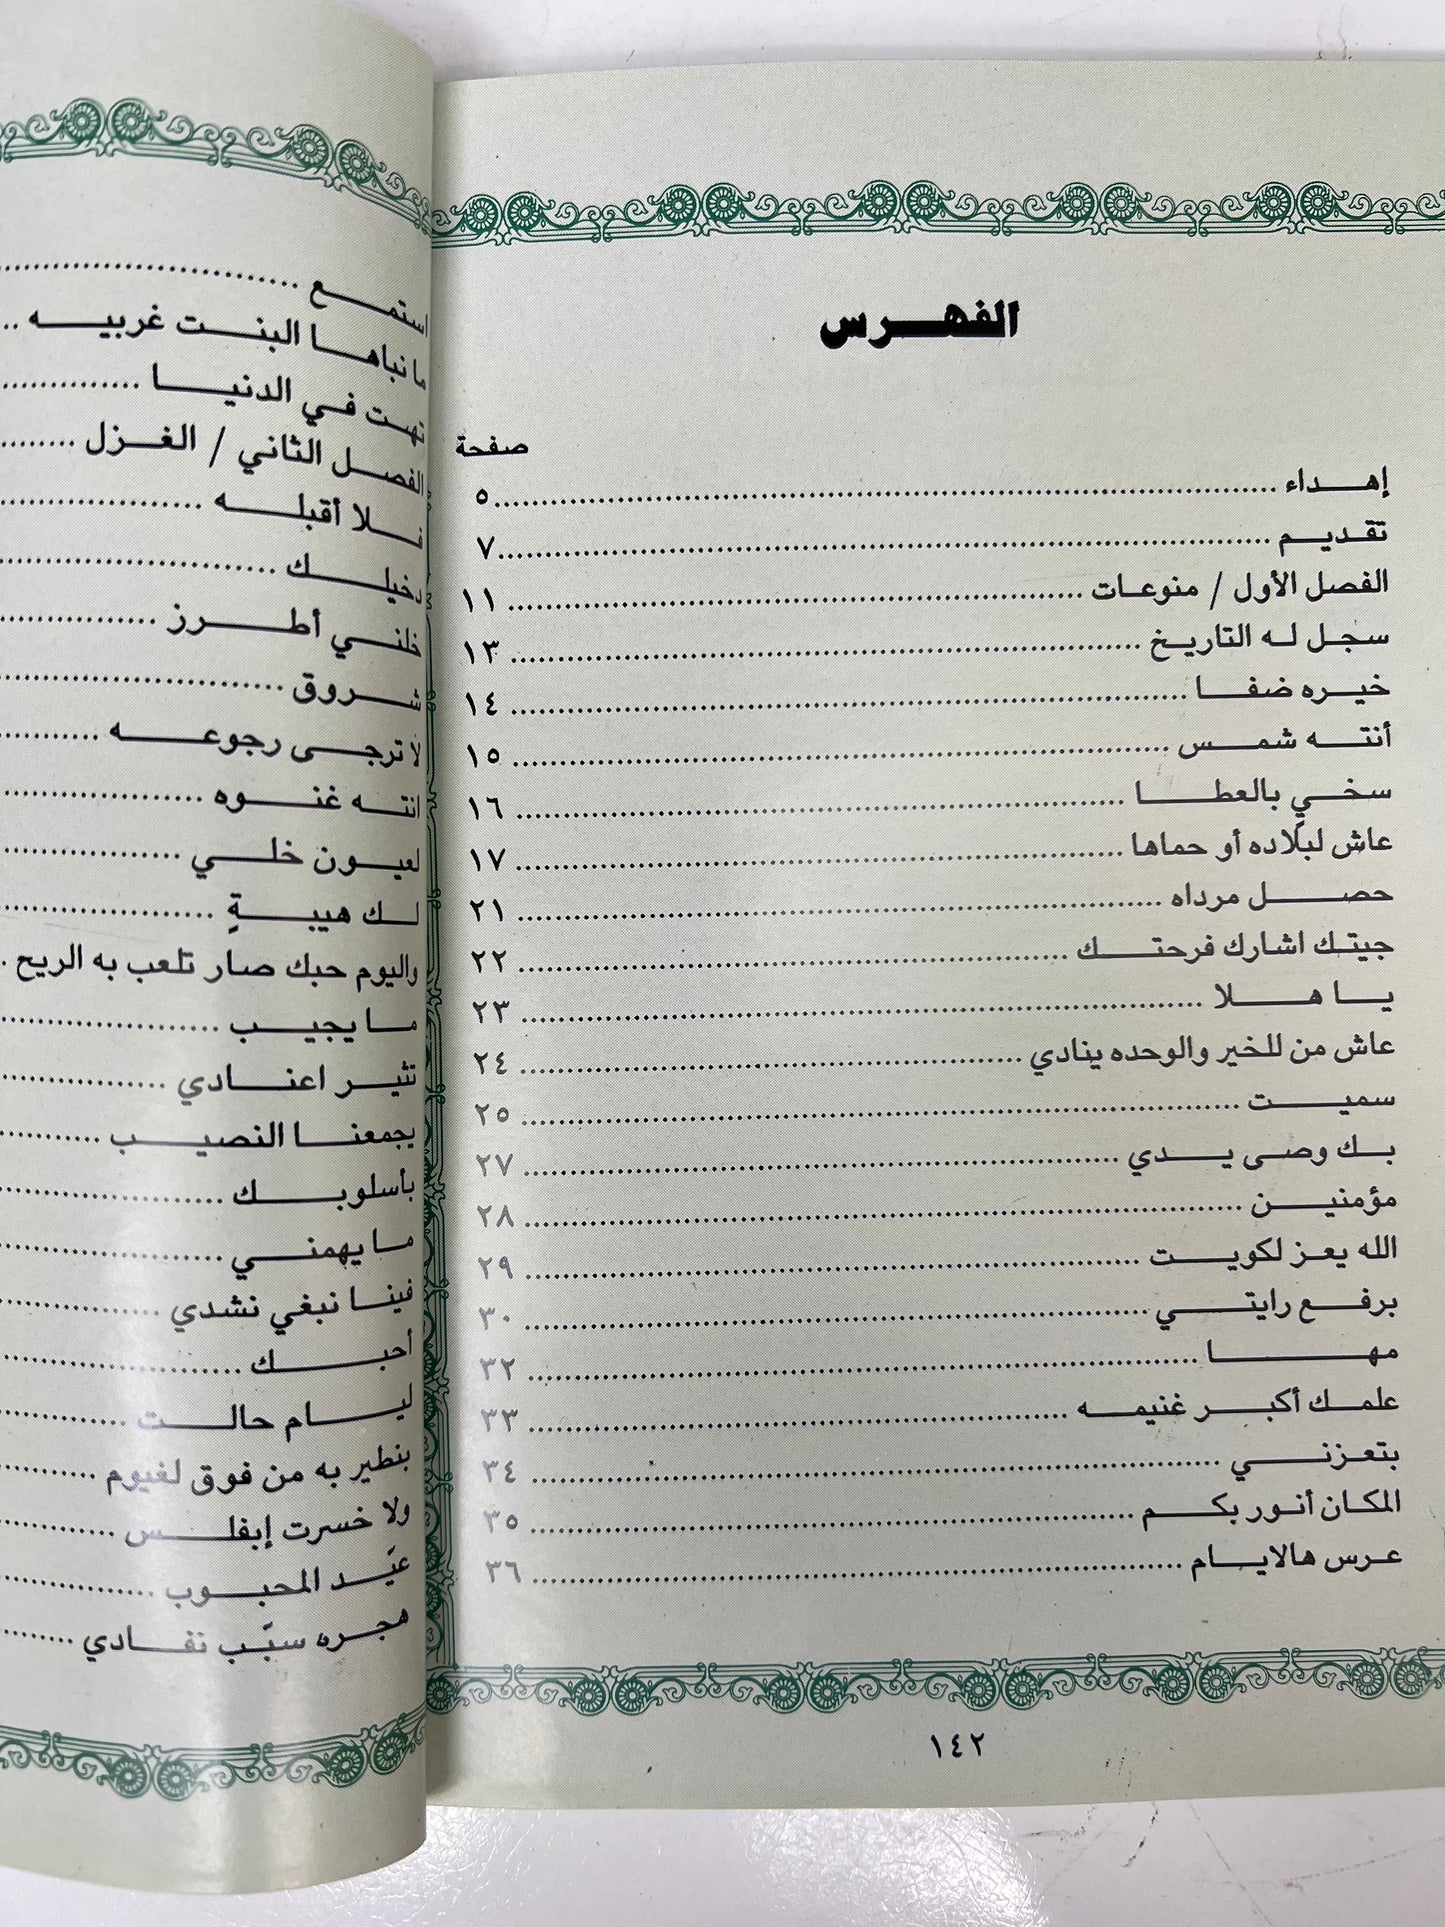 الفهرس
صفحة
إهداء ........ ٥
تقديم ........ ٧
الفصل الأول / منوعات ........ ١١
سجل له التاريخ ........ ١٣
خيره ضفا ........ ١٤
أنته شمس ........ ١٥
سخيٍ بالعطا ........ ١٦
عاش لبلاده أو حماها ........ ١٧
حصل مرداه ........ ٢١
جيتك اشارك فرحتك ........ ٢٢
يا هلا ........ ٢٣
عاش من للخير والوحده ينادي ........ ٢٤
سميت ........ ٢٥
بك وصى يدي ........ ٢٧
مؤمنين ........ ٢٨
الله يعز لكويت ........ ٢٩
برفع رايتي ........ ٣٠
مها ........ ٣٢
علمك أكبر غنيمه ........ ٣٣
بتعزني ........ ٣٤
المكان أنور بكم ........ ٣٥
عرس هالايام ........ ٣٦
١٤٢
استمع ........
ما نباها البنت غربيه ..
تهت في الدنيا ........
الفصل الثاني / الغزل ........
فلا أقبله ........
دخيلك ........
خلني أطرز ........
شروق ........
لا ترجى رجوعه ........
انته غنوه ........
لعيون خلي ........
لك هيبةٍ ........
واليوم حبك صار تلعب به الريح .
ما يجيب ........
تثير اعنادي ........
يجمعنا النصيب ........
بأسلوبك ........
ما يهمني ........
فينا نبغي نشدي ........
أحبك ........
ليام حالت ........
بنطير به من فوق لغيوم ........
ولا خسرت إبفلس ........
عيّد المحبوب ........
هجره سبّب نفادي ........